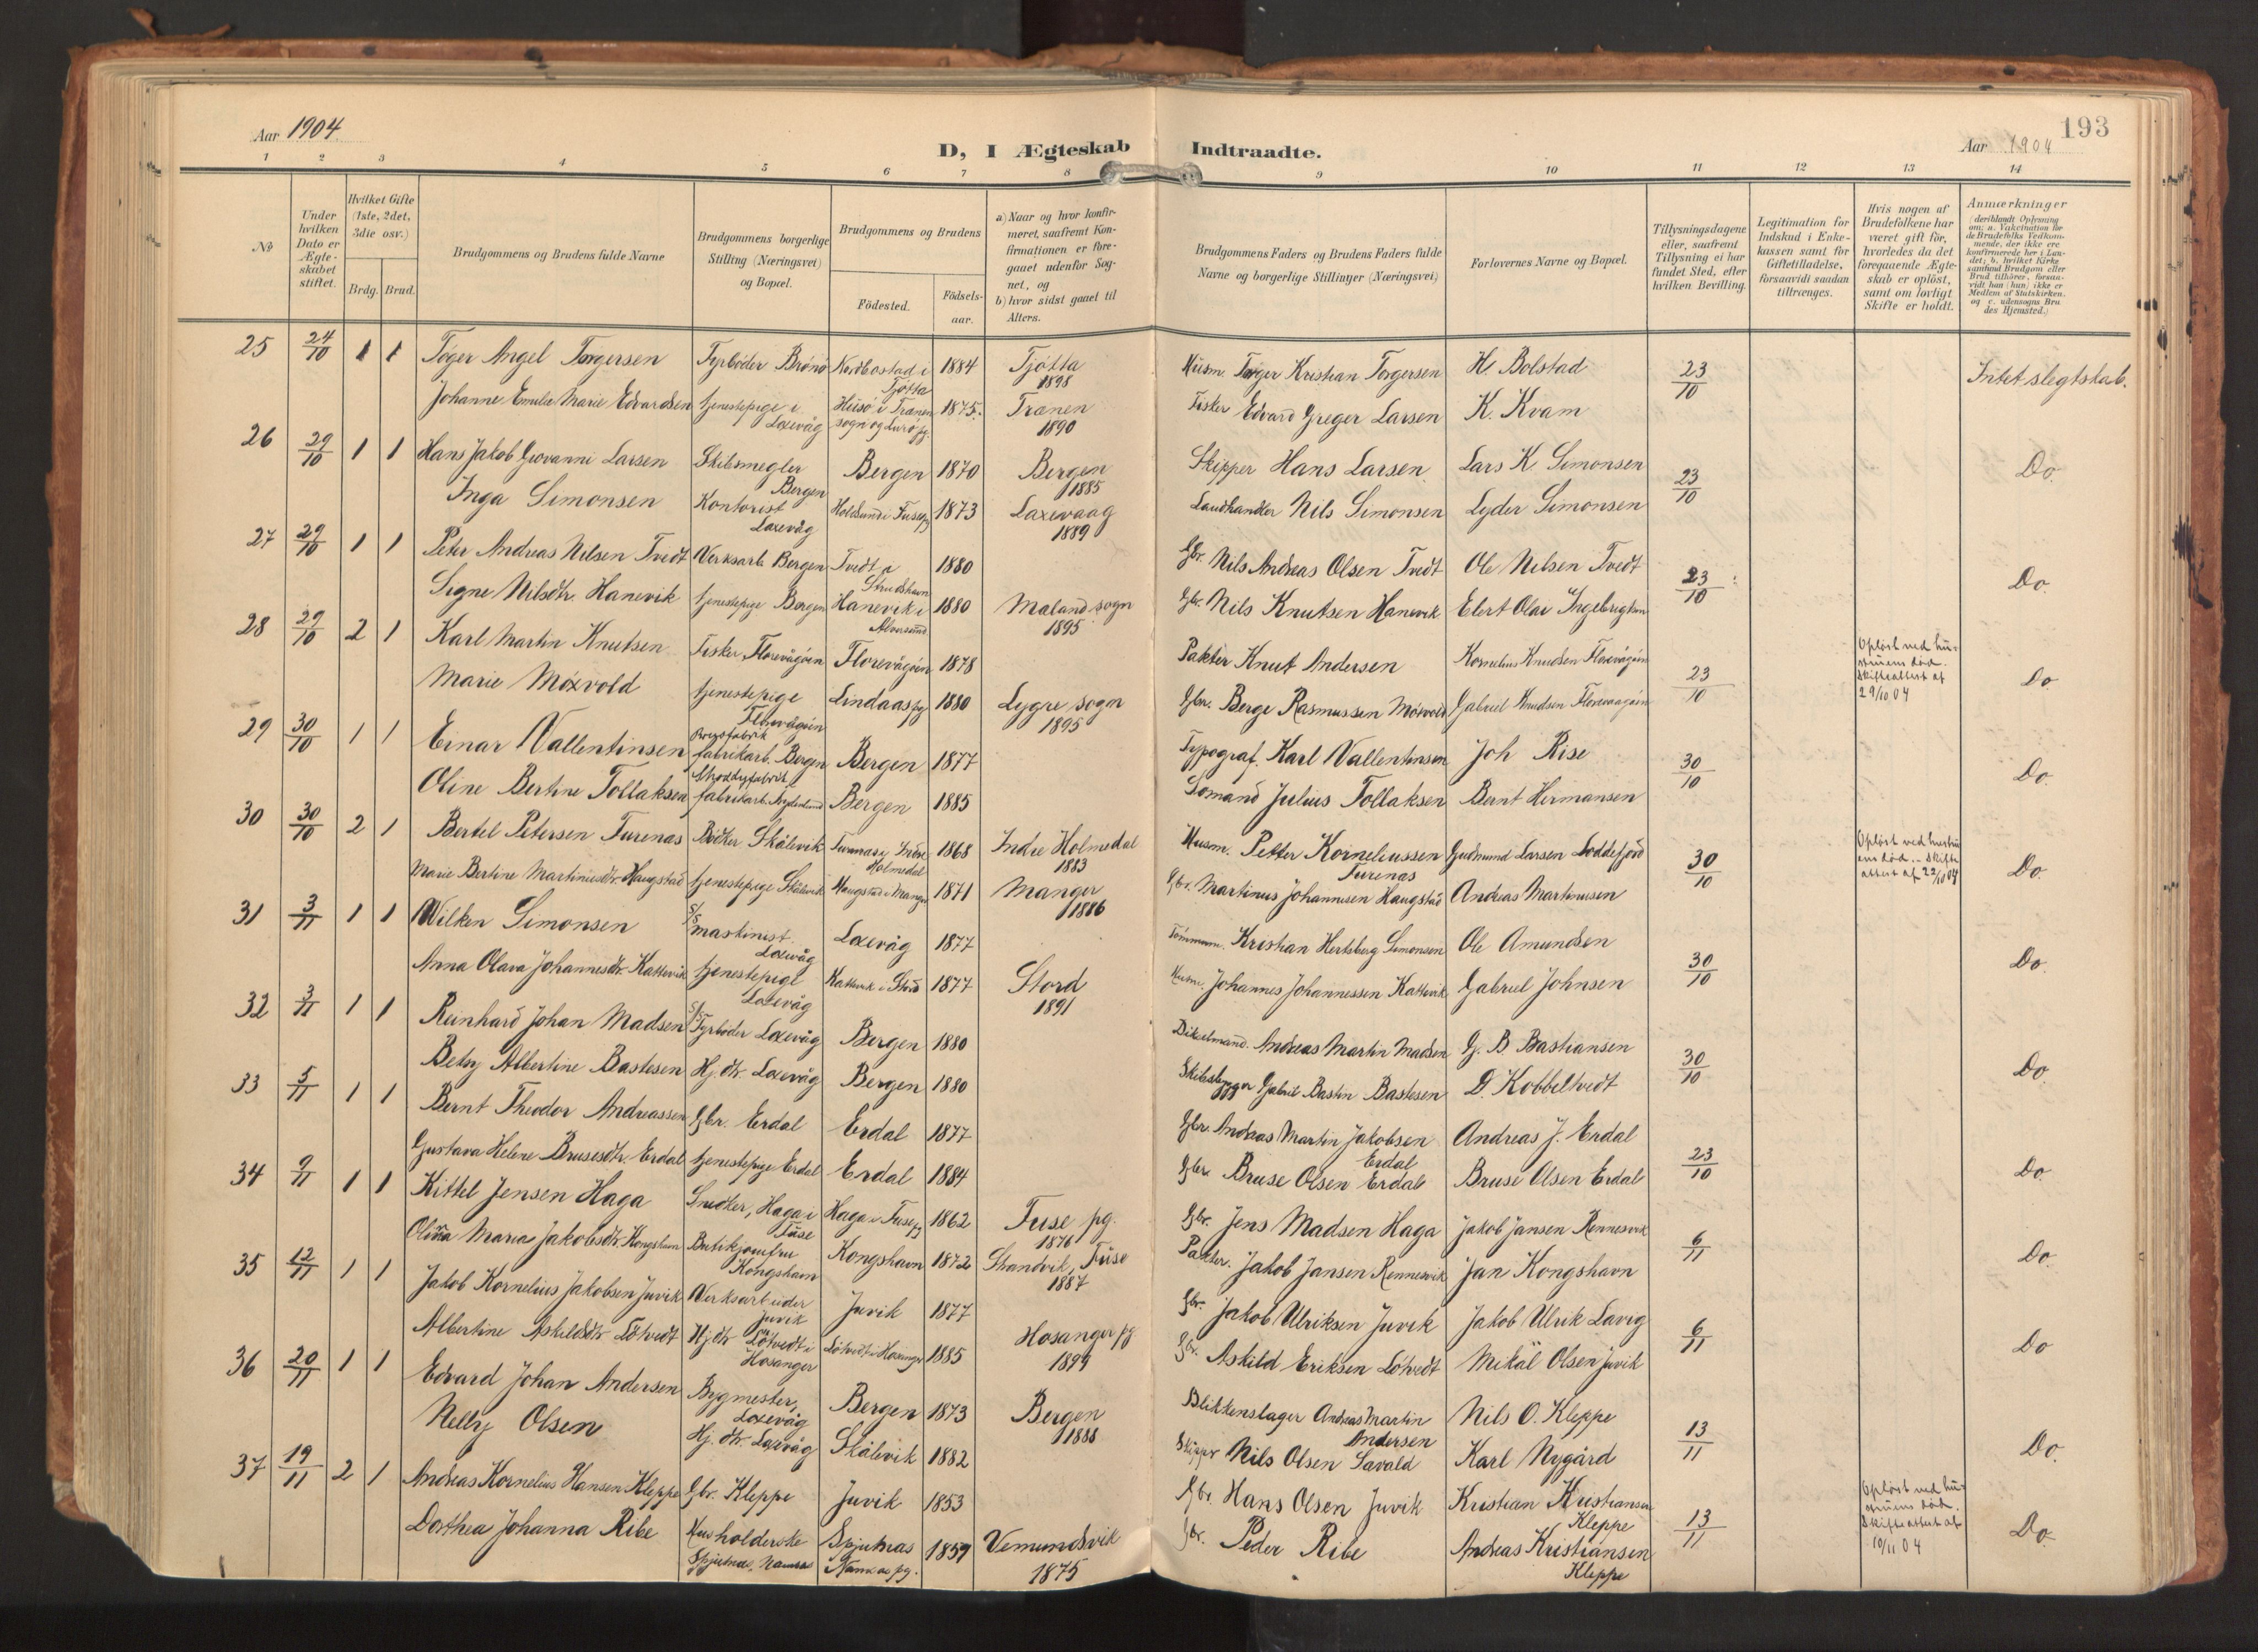 193
Aar 1904
D, I Ægteskab Indtraadte.
Aar 1904
1 2 3 4 5 6 7 8 9 10 11 12 13 14
No
Under hvilken Dato er Ægteskabet stiftet.
Hvilket Gifte (1ste, 2det, 3die osv.)
Brdg. Brud.
Brudgommens og Brudens fulde Navne
Brudgommens borgerlige Stilling (Næringsvei) og Bopæl.
Brudgommens og Brudens
Födested.
Födselsaar.
a) Naar og hvor konfirmeret, saafremt Konfirmationen er foregaaet udenfor Sognet, og
b) hvor sidst gaaet til Alters.
Brudgommens Faders og Brudens Faders fulde Navne og borgerlige Stillinger (Næringsvei)
Forlovernes Navne og Bopæl.
Tillysningsdagene eller, saafremt Tillysning ei har fundet Sted, efter hvilken Bevilling.
Legitimation for Indskud i Enkekassen samt for Giftetilladelse, forsaavidt saadan tiltrænges.
Hvis nogen af Brudefolkene har været gift för, hvorledes da det foregaaende Ægteskab er oplöst, samt om lovligt Skifte er holdt.
Anmærkninger
(deriblandt Oplysning om: a. Vakcination for de Brudefolks Vedkommende, der ikke ere konfirmerede her i Landet; b. hvilket Kirkesamfund Brudgom eller Brud tilhører, forsaavidt han (hun) ikke er Medlem af Statskirken, og c. udensogns Brudes Hjemsted.)
25 24/10 1 1 Töger Angel Torgersen Fyrböder Brönö Nordbostad i Tjötta 1884 Tjötta 1898 Husm. Torger Kristian Torgersen H. Bolstad 23/10 Intet slegtskab.
Johanne Emelie Marie Edvardsen tjenestepige i Laxevåg Husö i Tranen sogn og Lurö pg. 1875. Tranen 1890 Fisker Edvard Greger Larsen K. Kvam
26 29/10 1 1 Hans Jakob Giovanni Larsen Skibsmegler Bergen Bergen 1870 Bergen 1885 Skipper Hans Larsen Lars K Simonsen 23/10 Do.
Inga Simonsen Kontorist Laxevåg Holdsund i Fuse pg 1873 Laxevaag 1889 Landhandler Nils Simonsen Lyder Simonsen
27 29/10 1 1 Peter Andreas Nilsen Tvedt Verksarb. Bergen Tvedt 1880 Gbr. Nils Andreas Olsen Tvedt Ole Nilsen Tvedt 23/10 Do.
Signe Nilsdtr Hanevik tjenestepige Bergen Hanevik i Alversund 1880 Maland sogn 1895 Gbr. Nils Knutsen Hanevik Elert Olai Ingebrigtsen
28 29/10 2 1 Karl Martin Knutsen Fisker, Florevågöen Florevågöen 1878 Pakter Knut Andersen Kornelius Knudsen Florevågöen 23/10 Oplöst ved hustruens död. Skifteattest af 29/10 04 Do
Marie Moxvold tjenestepige Florevågöen Lindaas pg 1880 Lygre sogn 1895 Gbr. Berge Rasmussen Moxvold Gabriel Knudsen Florevaagöen
29 30/10 1 1 Einar Vallentinsen fabrikarb. Bergen Bergen 1877 Typograf. Karl Vallentinsen Joh Rise 30/10 Do.
Oline Bertine Tollaksen Shoddyfabrik fabrikarb. Bergen 1885 Somand Julius Tollaksen Bernt Hermansen
30 30/10 2 1 Bertel Petersen Turenas Bödker Skålevik Turenas i Indre Holmedal 1868 Indre Holmedal 1883 Husm. Petter Korneliussen Turenas Gudmund Larsen Loddefjord 30/10 Oplöst ved hustruens död. Skifteattest af 22/10 04 Do.
Marie Bertine Martinusdtr. Haugstad tjenestepige Skålevik Haugstad i Manger 1871 Manger 1886 Gbr. Martinus Johannesen Haugstad Andreas Martinusen
31 3/11 1 1 Wilken Simonsen S/S maskinist Laxevåg Laxevåg 1877 Tömmerm. Kristian Hertsberg Simonsen Ole Amundsen 30/10 Do.
Anna Olava Johannesdtr. Kattevik tjenestepige Laxevåg Kattevik i Stord 1877 Stord 1891 Husm. Johannes Johannessen Kattevik Gabriel Johnsen
32 3/11 1 1 Reinhard Johan Madsen S/S Fyrböder Laxevåg Bergen 1880 Andreas Martin Madsen G. B. Bastiansen 30/10 Do.
Betsy Albertine Bastesen Hj. dtr. Laxevåg Bergen 1880 Skibsbygger Gabriel Bastin Bastesen D. Kobbeltvedt
33 5/11 1 1 Bernt Theodor Andreassen Gbr. Erdal Erdal 1877 Gbr. Andreas Martin Jakobsen Erdal Andreas J. Erdal 23/10 Do.
Gustava Helene Brusesdtr. Erdal tjenestepige Erdal Erdal 1884 Gbr. Bruse Olsen Erdal Bruse Olsen Erdal
34 9/11 1 1 Kittel Jensen Haga Snedker, Haga i Fuse Haga i Fuse pg 1862 Fuse pg. 1876 Gbr. Jens Madsen Haga Jakob Jansen Rennesvik 6/11 Do.
Olina Maria Jakobsdtr. Kongshavn Butikjomfru Kongshavn Kongshavn 1872 Strandvik, Fuse 1887 Pakter. Jakob Jansen Rennesvik Jan Kongshavn
35 12/11 1 1 Jakob Kornelius Jakobsen Juvik Verksarbeider Juvik Juvik 1877 Gbr. Jakob Ulriksen Juvik Jakob Ulrik Lavig 6/11 Do
Albertine Askildsdtr Lötvedt Hj. dtr Lötvedt i Hosanger Lötvedt i Hosanger 1885 Hosanger pg 1899 Gbr. Askild Eriksen Lötvedt Mikäl Olsen Juvik
36 20/11 1 1 Edvard Johan Andersen Bygmester, Laxevåg Bergen 1873 Bergen 1888 Blikkenslager Andreas Martin Andersen Nils O. Kleppe 13/11 Do.
Nelly Olsen Hj. dtr. Laxevåg Skålevik 1882 Skipper Nils Olsen Savald Karl Nygård
37 19/11 2 1 Andreas Kornelius Hansen Kleppe Gbr. Kleppe Juvik 1853 Gbr. Hans Olsen Juvik Kristian Kristiansen Kleppe 13/11 Oplöst ved hustruens död. Skifteattest af 10/11 04 Do.
Dorthea Johanna Ribe Husholderske Spjutnes, Namsos Spjutnas Namsos pg. 1859 Vemundsvik 1875 Gbr. Peder Ribe Andreas Kristiansen Kleppe